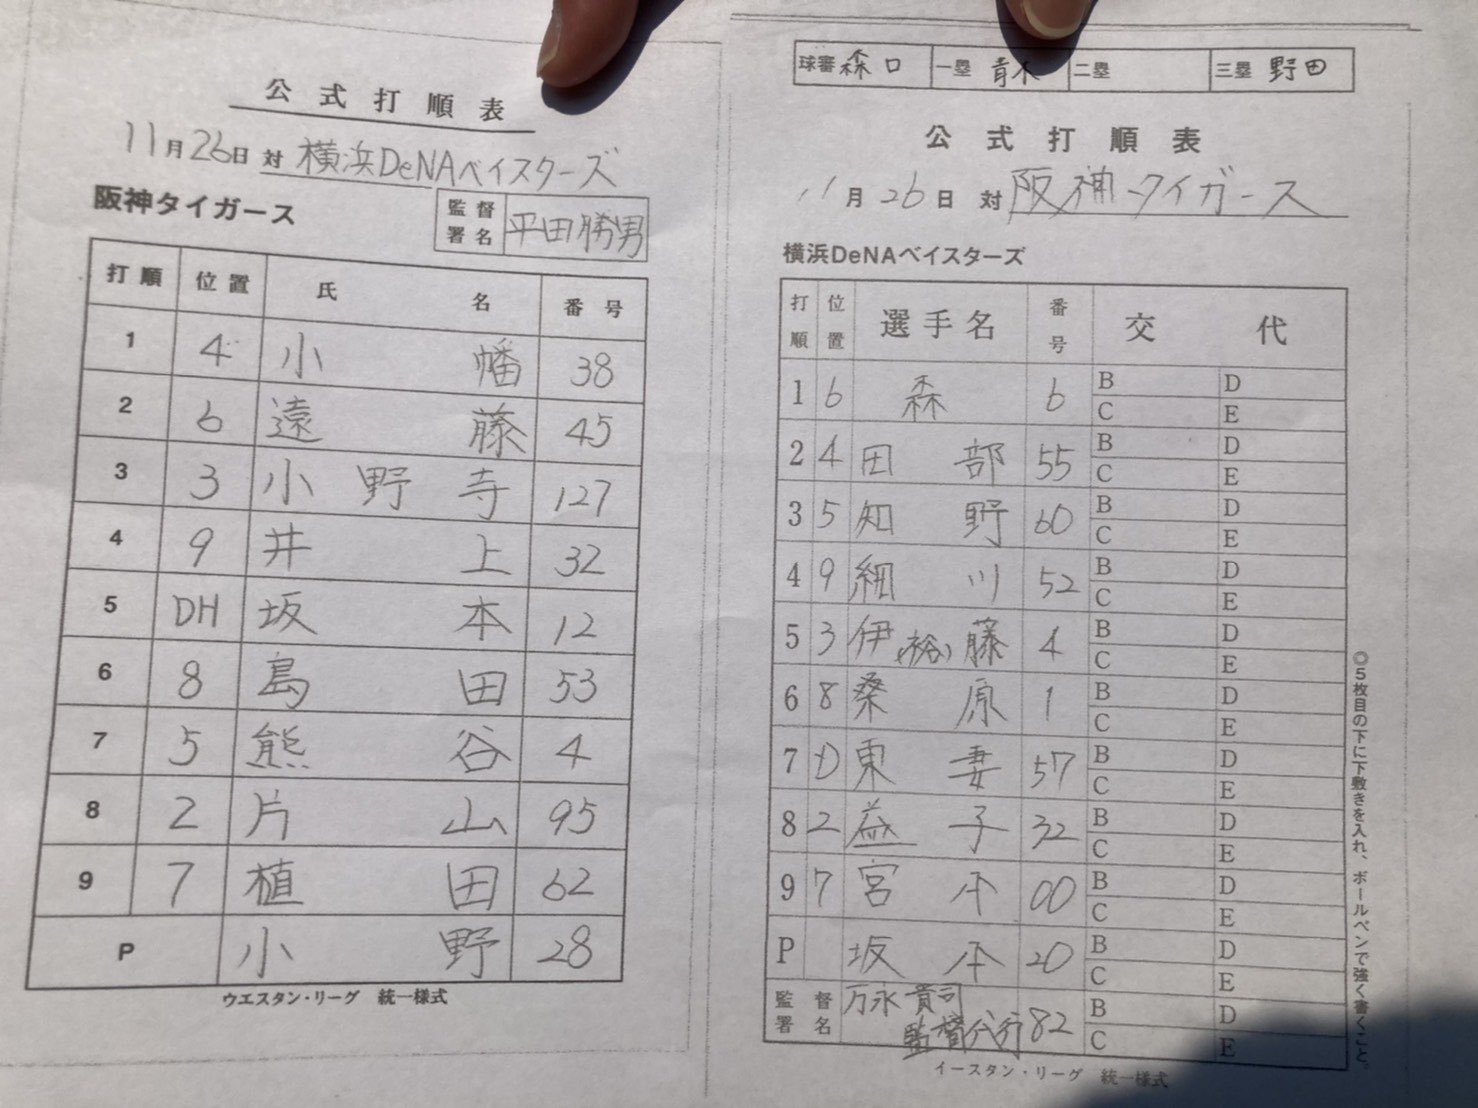 公式打順表
11月26日 対 横浜DeNAベイスターズ
阪神タイガース 監督署名 平田勝男
打順 位置 氏名 番号
1 4 小幡 38
2 6 遠藤 45
3 3 小野寺 127
4 9 井上 32
5 DH 坂本 12
6 8 島田 53
7 5 熊谷 4
8 2 片山 95
9 7 植田 62
P 小野 28
ウエスタン・リーグ 統一様式
球審 森口 一塁 青木 二塁 三塁 野田
公式打順表
11月26日 対 阪神タイガース
横浜DeNAベイスターズ
打順 位置 選手名 番号 交代
1 6 森 6 B D
C E
2 4 田部 55 B D
C E
3 5 知野 60 B D
C E
4 9 細川 52 B D
C E
5 3 伊藤(裕) 4 B D
C E
6 8 桑原 1 B D
C E
7 D 東妻 57 B D
C E
8 2 益子 32 B D
C E
9 7 宮本 00 B D
C E
P 坂本 20 B D
C E
監督署名 万永貴司 監督代行 82 B D
C E
イースタン・リーグ 統一様式
◎5枚目の下に下敷きを入れ、ボールペンで強く書くこと。